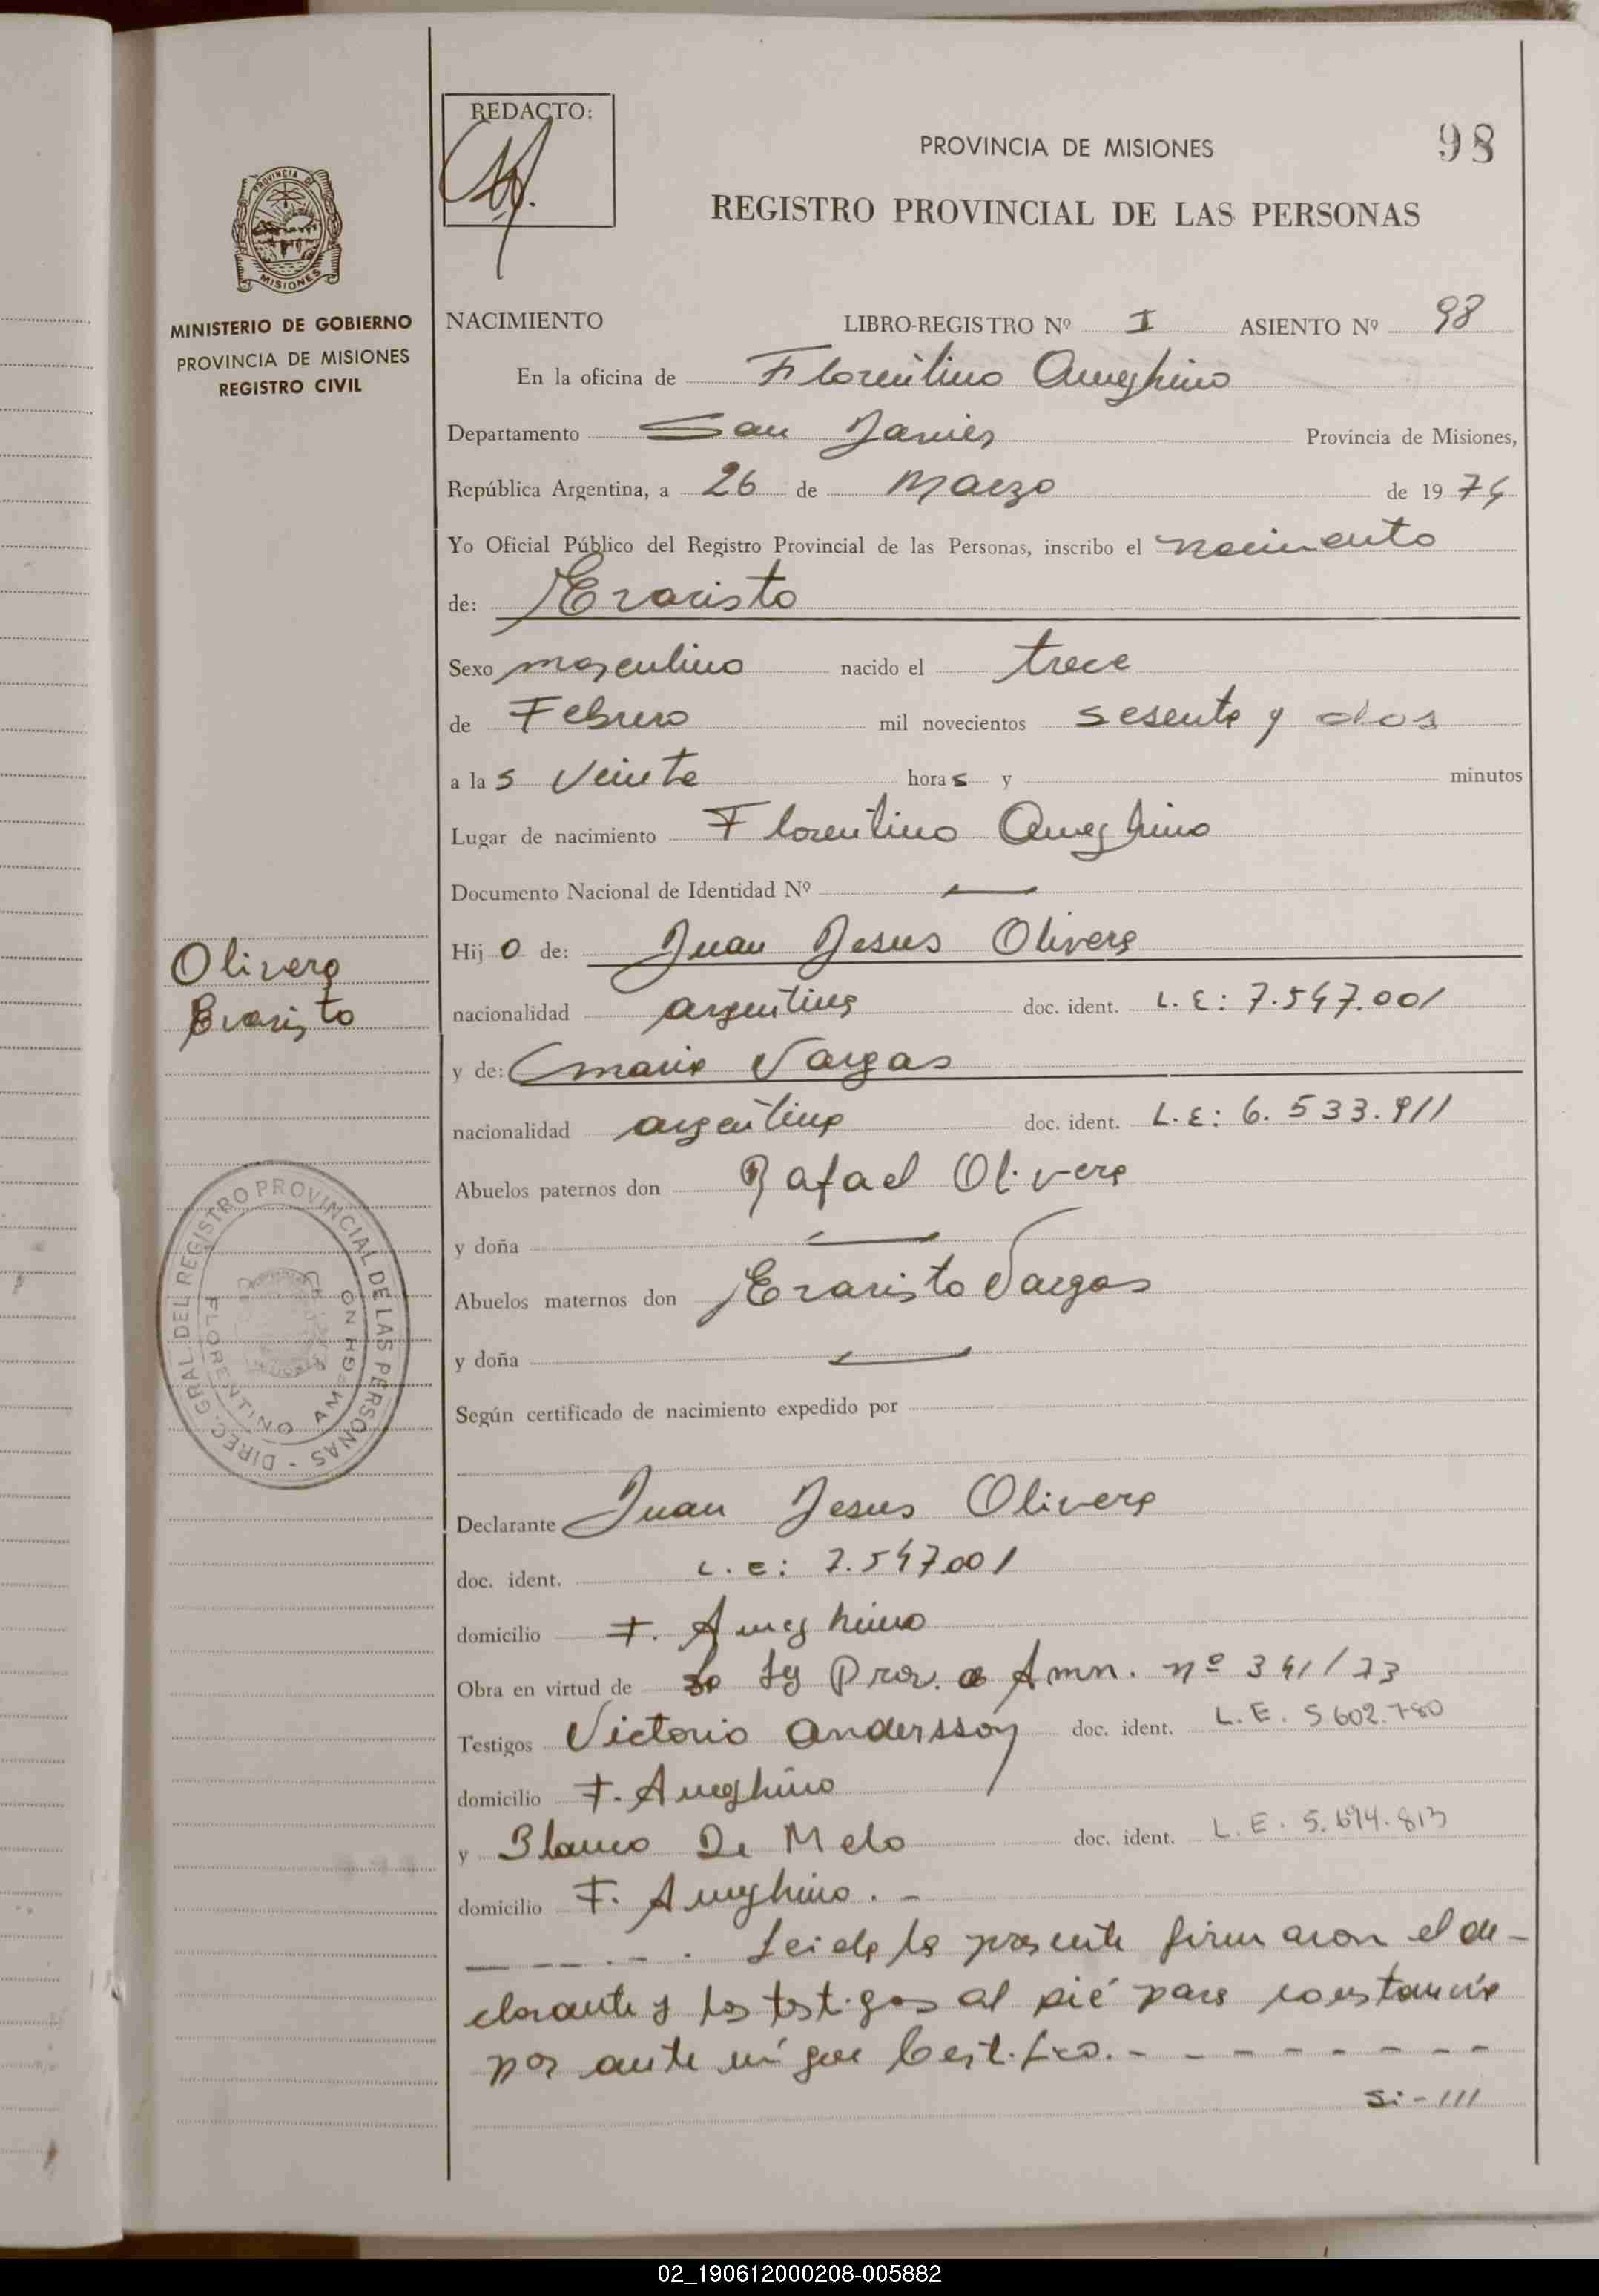 REDACTO:
PROVINCIA DE MISIONES
98
REGISTRO PROVINCIAL DE LAS PERSONAS
PROVINCIA DE
MISIONES
MINISTERIO DE GOBIERNO
PROVINCIA DE MISIONES
REGISTRO CIVIL
NACIMIENTO LIBRO-REGISTRO Nº I ASIENTO Nº 98
En la oficina de Florentino Ameghino
Departamento San Javier Provincia de Misiones,
República Argentina, a 26 de Marzo de 1974
Yo Oficial Público del Registro Provincial de las Personas, inscribo el nacimiento
de: Evaristo
Sexo masculino nacido el trece
de Febrero mil novecientos sesenta y dos
a las veinte horas y minutos
Lugar de nacimiento Florentino Ameghino
Documento Nacional de Identidad Nº —
Olivera
Evaristo
Hijo de: Juan Jesus Olivera
nacionalidad argentina doc. ident. L.E: 7.547.001
y de: Maria Vargas
nacionalidad argentina doc. ident. L.E: 6.533.911
Abuelos paternos don Rafael Olivera
y doña —
Abuelos maternos don Evaristo Vargas
y doña —
Según certificado de nacimiento expedido por
DIREC. GRAL. DEL REGISTRO PROVINCIAL DE LAS PERSONAS -
FLORENTINO AMEGHINO
Declarante Juan Jesus Olivera
doc. ident. L.E: 7.547.001
domicilio F. Ameghino
Obra en virtud de la Ley Prov. Amn. nº 341/73
Testigos Victorio Andersson doc. ident. L.E. 5602.780
domicilio F. Ameghino
y Blanco De Melo doc. ident. L.E. 5.694.813
domicilio F. Ameghino. -
Leida la presente firmaron el de-
clarante y los testigos al pié para constancia
por ante mí que Certifico. - - - - - - - -
Si-///
02_190612000208-005882